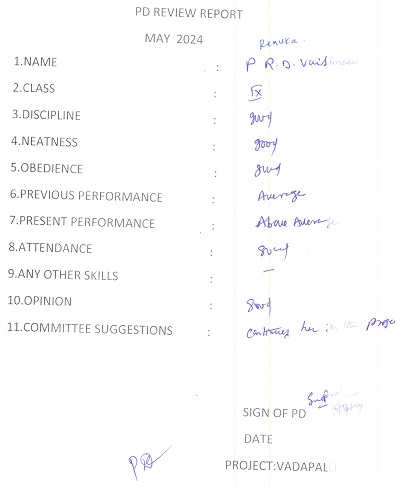 PD REVIEW REPORT
MAY 2024
Renuka.
1.NAME : P R.D. Vaishnavi
2.CLASS : IX
3.DISCIPLINE : good
4.NEATNESS : good
5.OBEDIENCE : good
6.PREVIOUS PERFORMANCE : Average
7.PRESENT PERFORMANCE : Above Average
8.ATTENDANCE : good
9.ANY OTHER SKILLS : —
10.OPINION : good
11.COMMITTEE SUGGESTIONS : continues her in the
SIGN OF PD
DATE
PROJECT:VADAPALLI